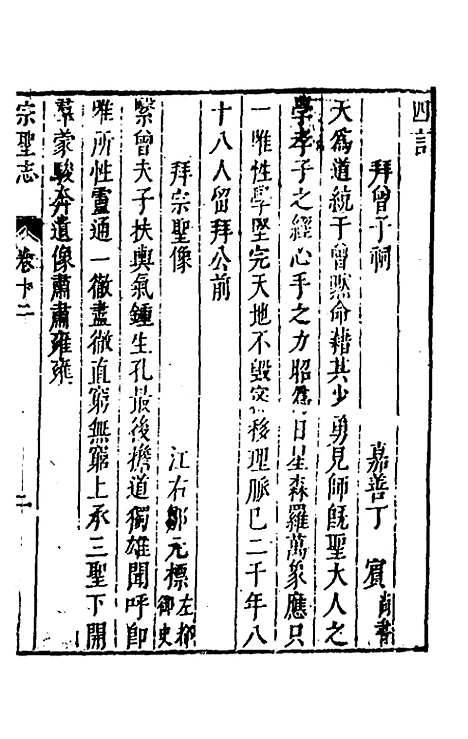 四言
拜曾子祠 嘉善丁 賓尚書
天爲道統于曾黙命藉其少勇見師旣聖大人之
學孝子之經心手之力昭爲日星森羅萬象應只
一唯性學堅完天地不毀 移理脈已二千年八
十八人留拜公前
拜宗聖像 江右鄒元標左都御史
緊曾夫子扶輿氣鍾生孔最後擔道獨雄聞呼卽
唯所性靈通一徹盡徹直窮無窮上承三聖下開
羣蒙駿奔遺像肅肅雍雍
宗聖志 卷十二 二